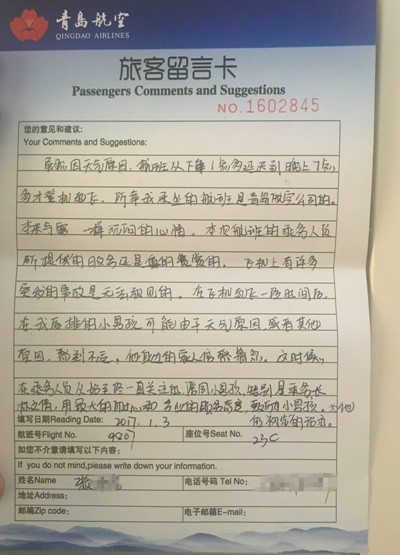 青岛航空
QINGDAO AIRLINES
旅客留言卡
Passengers Comments and Suggestions
NO.1602845
您的意见和建议:
Your Comments and Suggestions:
虽然因天气原因,航班从下午1点多延迟到晚上7点
多才登机起飞,所幸我乘坐的航班是青岛航空公司的,
一样的心情。本次航班的乘务人员
所提供的服务还是。飞机上有许多
是无法预见的。在飞机起飞一段时间后,
在我后排的小男孩可能由于天气原因或者其他
原因,感到不适,他的家人很着急,这时候,
在乘务人员从始至终一直关注、陪同小男孩,特别是乘务长
用最大的耐心和的服务态度,小男孩、
填写日期Reading Date: 2017.1.3
航班号Flight No. 9807 座位号Seat No. 23C
如您不介意请填写以下内容:
If you do not mind,please write down your information.
姓名Name 张 电话号码 Tel No:
地址Address:
邮编Zip code: 电子邮箱E-mail: